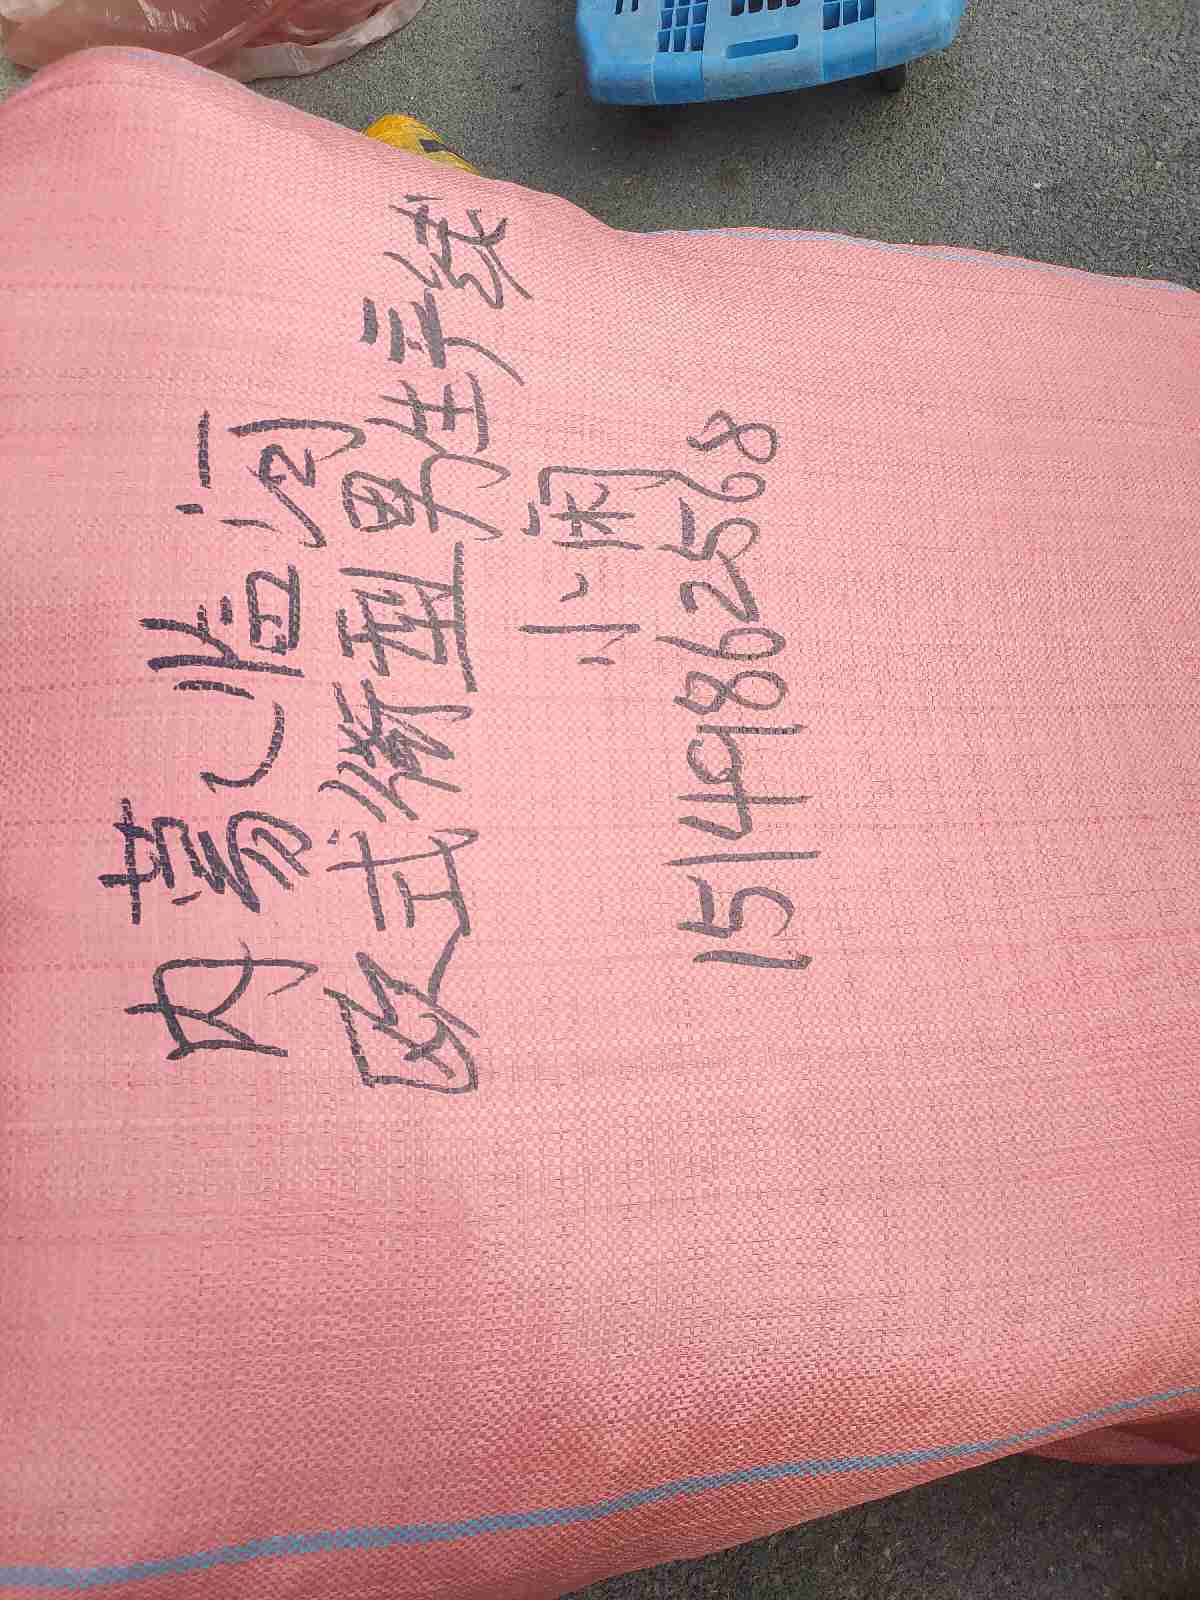 内蒙临河
欧式型男生手续
小闲
15149862568